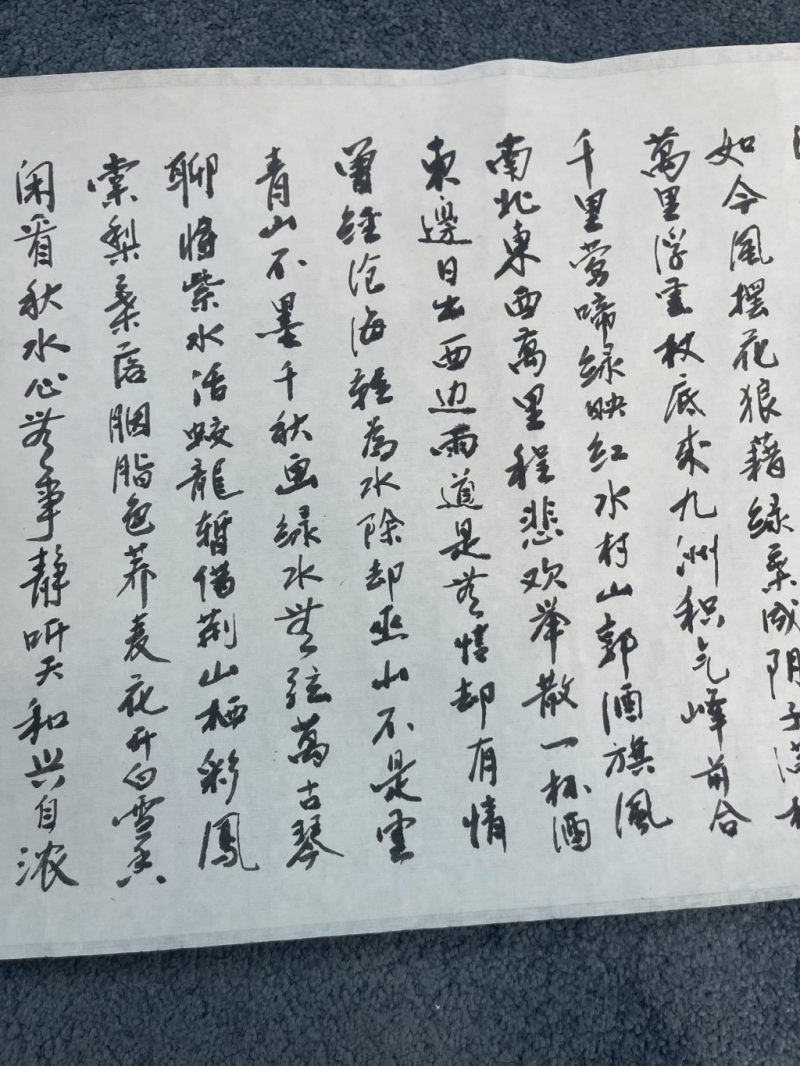 如今風摆花狼藉绿葉成阴子满枝
萬里浮雲杖底来九洲积气峰前合
千里莺啼绿映红水村山郭酒旗風
南北東西萬里程悲欢举散一杯酒
東邊日出西边雨道是無情却有情
曾經沧海難為水除却巫山不是雲
青山不墨千秋画绿水無弦萬古琴
聊将紫水活蛟龍暂借荆山栖彩鳳
棠梨葉落胭脂色荞麦花开白雪香
闲看秋水心無事静听天和兴自浓